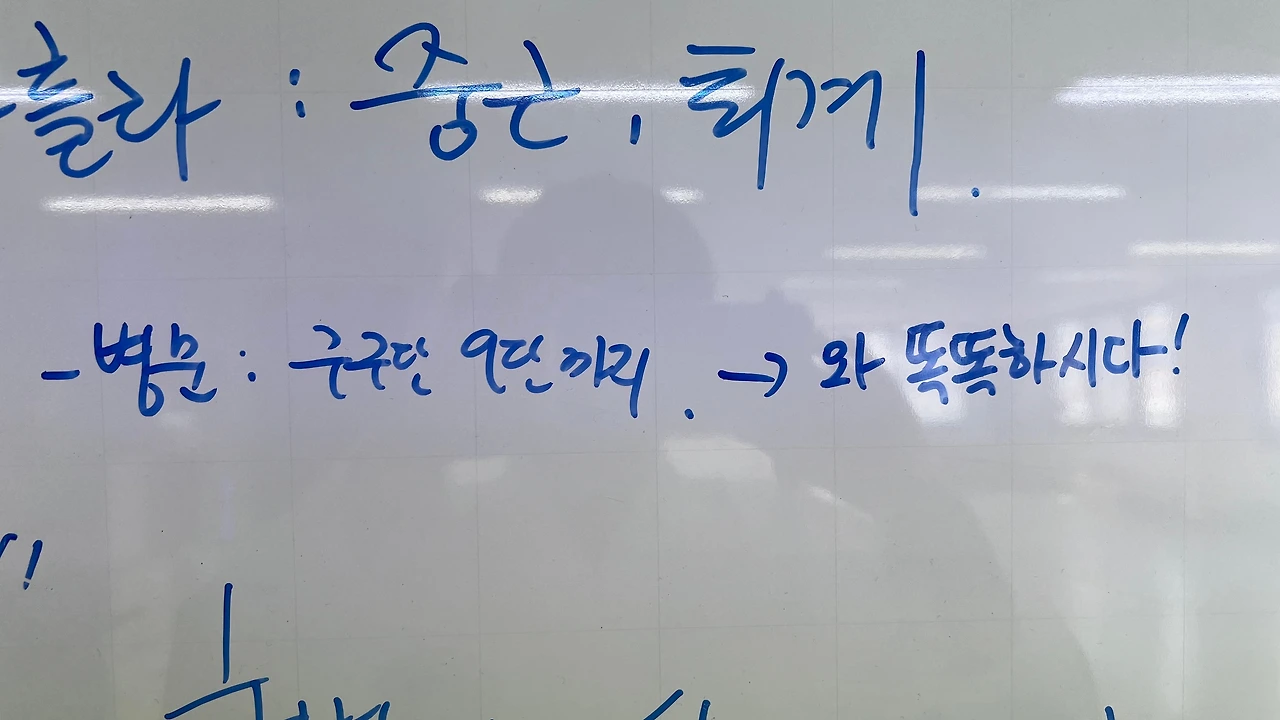 출라 : 중근, 퇴계.
- 병문 : 구구단 9단까지. → 와 똑똑하시다!
!